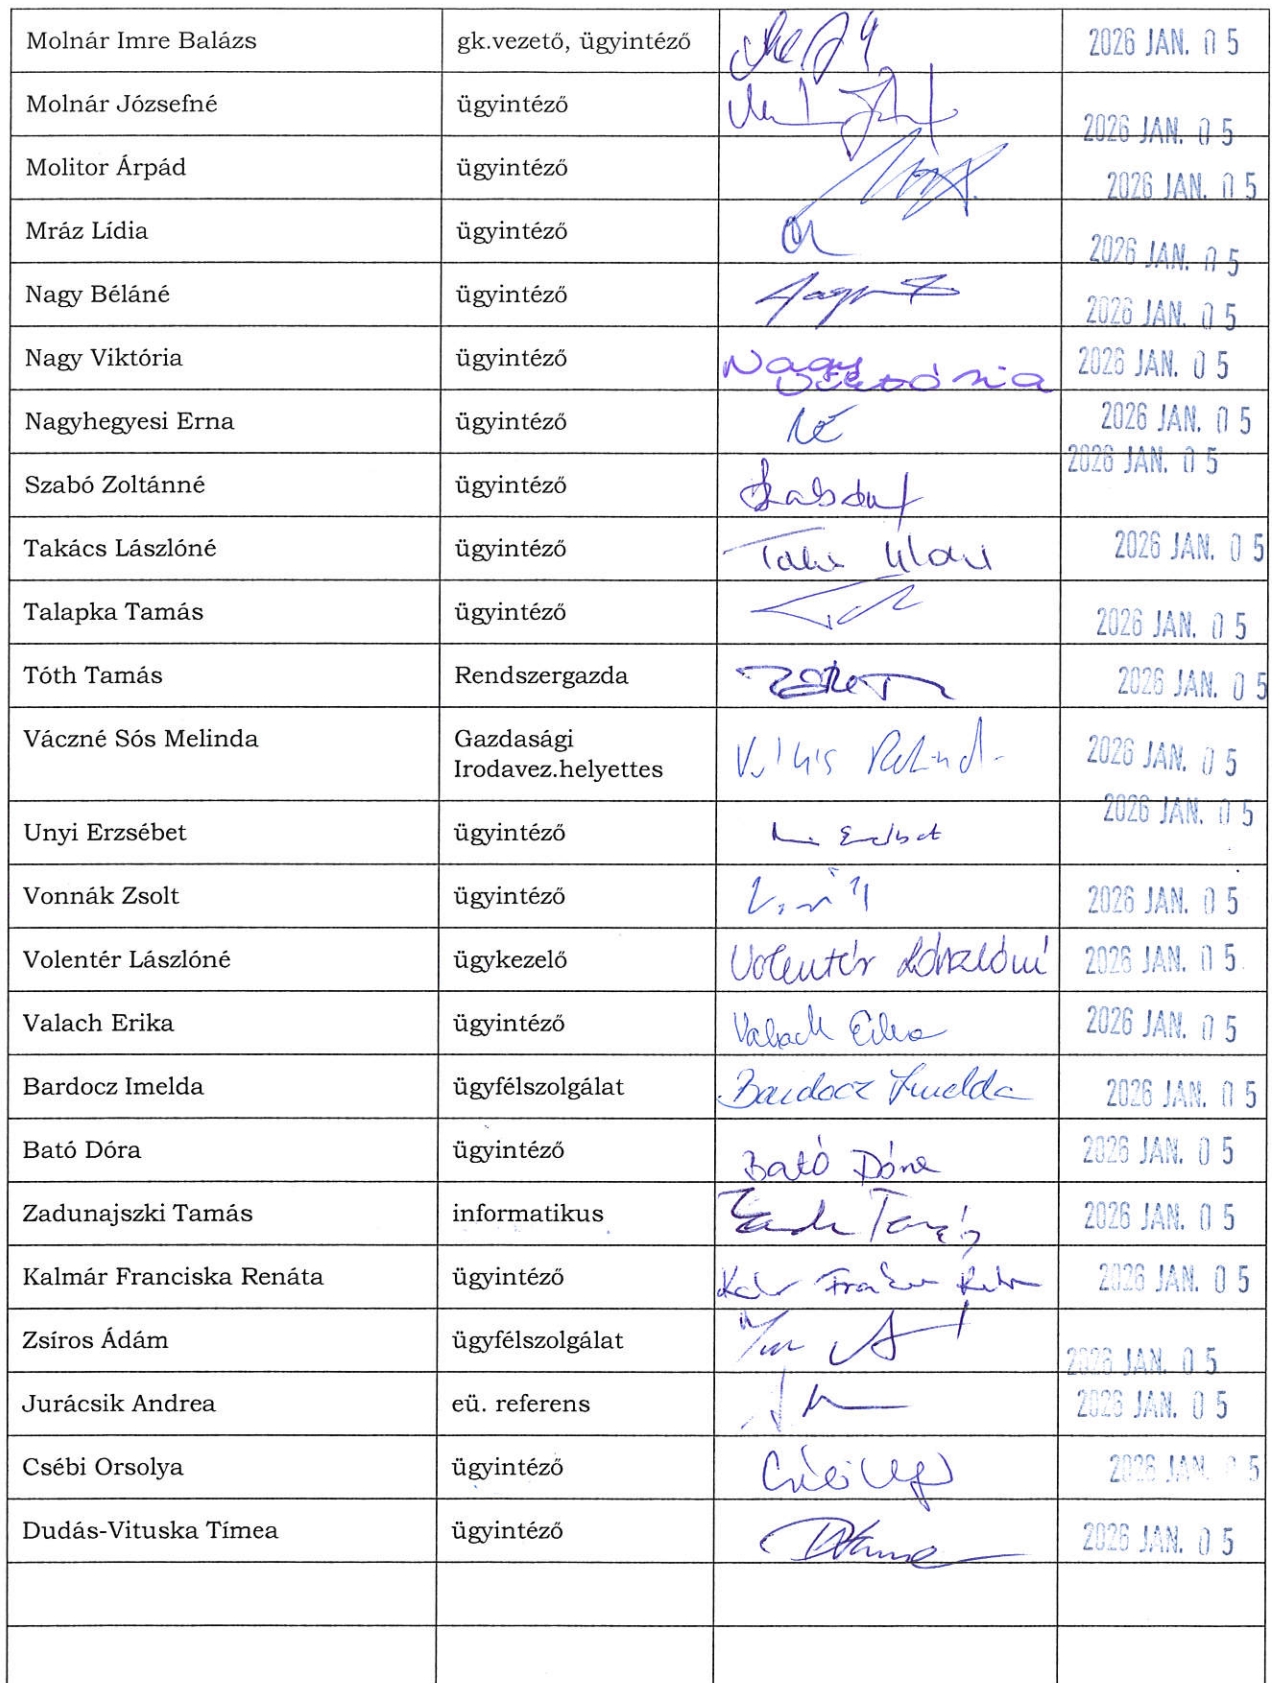 Molnár Imre Balázs gk.vezető, ügyintéző 2026 JAN. 05
Molnár Józsefné ügyintéző 2026 JAN. 05
Molitor Árpád ügyintéző 2026 JAN. 05
Mráz Lídia ügyintéző 2026 JAN. 05
Nagy Béláné ügyintéző 2026 JAN. 05
Nagy Viktória ügyintéző Nagy Viktória 2026 JAN. 05
Nagyhegyesi Erna ügyintéző NE 2026 JAN. 05
Szabó Zoltánné ügyintéző 2026 JAN. 05
Takács Lászlóné ügyintéző 2026 JAN. 05
Talapka Tamás ügyintéző 2026 JAN. 05
Tóth Tamás Rendszergazda 2026 JAN. 05
Váczné Sós Melinda Gazdasági
Irodavez.helyettes 2026 JAN. 05
Unyi Erzsébet ügyintéző 2026 JAN. 05
Vonnák Zsolt ügyintéző 2026 JAN. 05
Volentér Lászlóné ügykezelő Volentér Lászlóné 2026 JAN. 05
Valach Erika ügyintéző Valach Erika 2026 JAN. 05
Bardocz Imelda ügyfélszolgálat Bardocz Imelda 2026 JAN. 05
Bató Dóra ügyintéző Bató Dóra 2026 JAN. 05
Zadunajszki Tamás informatikus 2026 JAN. 05
Kalmár Franciska Renáta ügyintéző 2026 JAN. 05
Zsíros Ádám ügyfélszolgálat 2026 JAN. 05
Jurácsik Andrea eü. referens 2026 JAN. 05
Csébi Orsolya ügyintéző 2026 JAN. 05
Dudás-Vituska Tímea ügyintéző 2026 JAN. 05